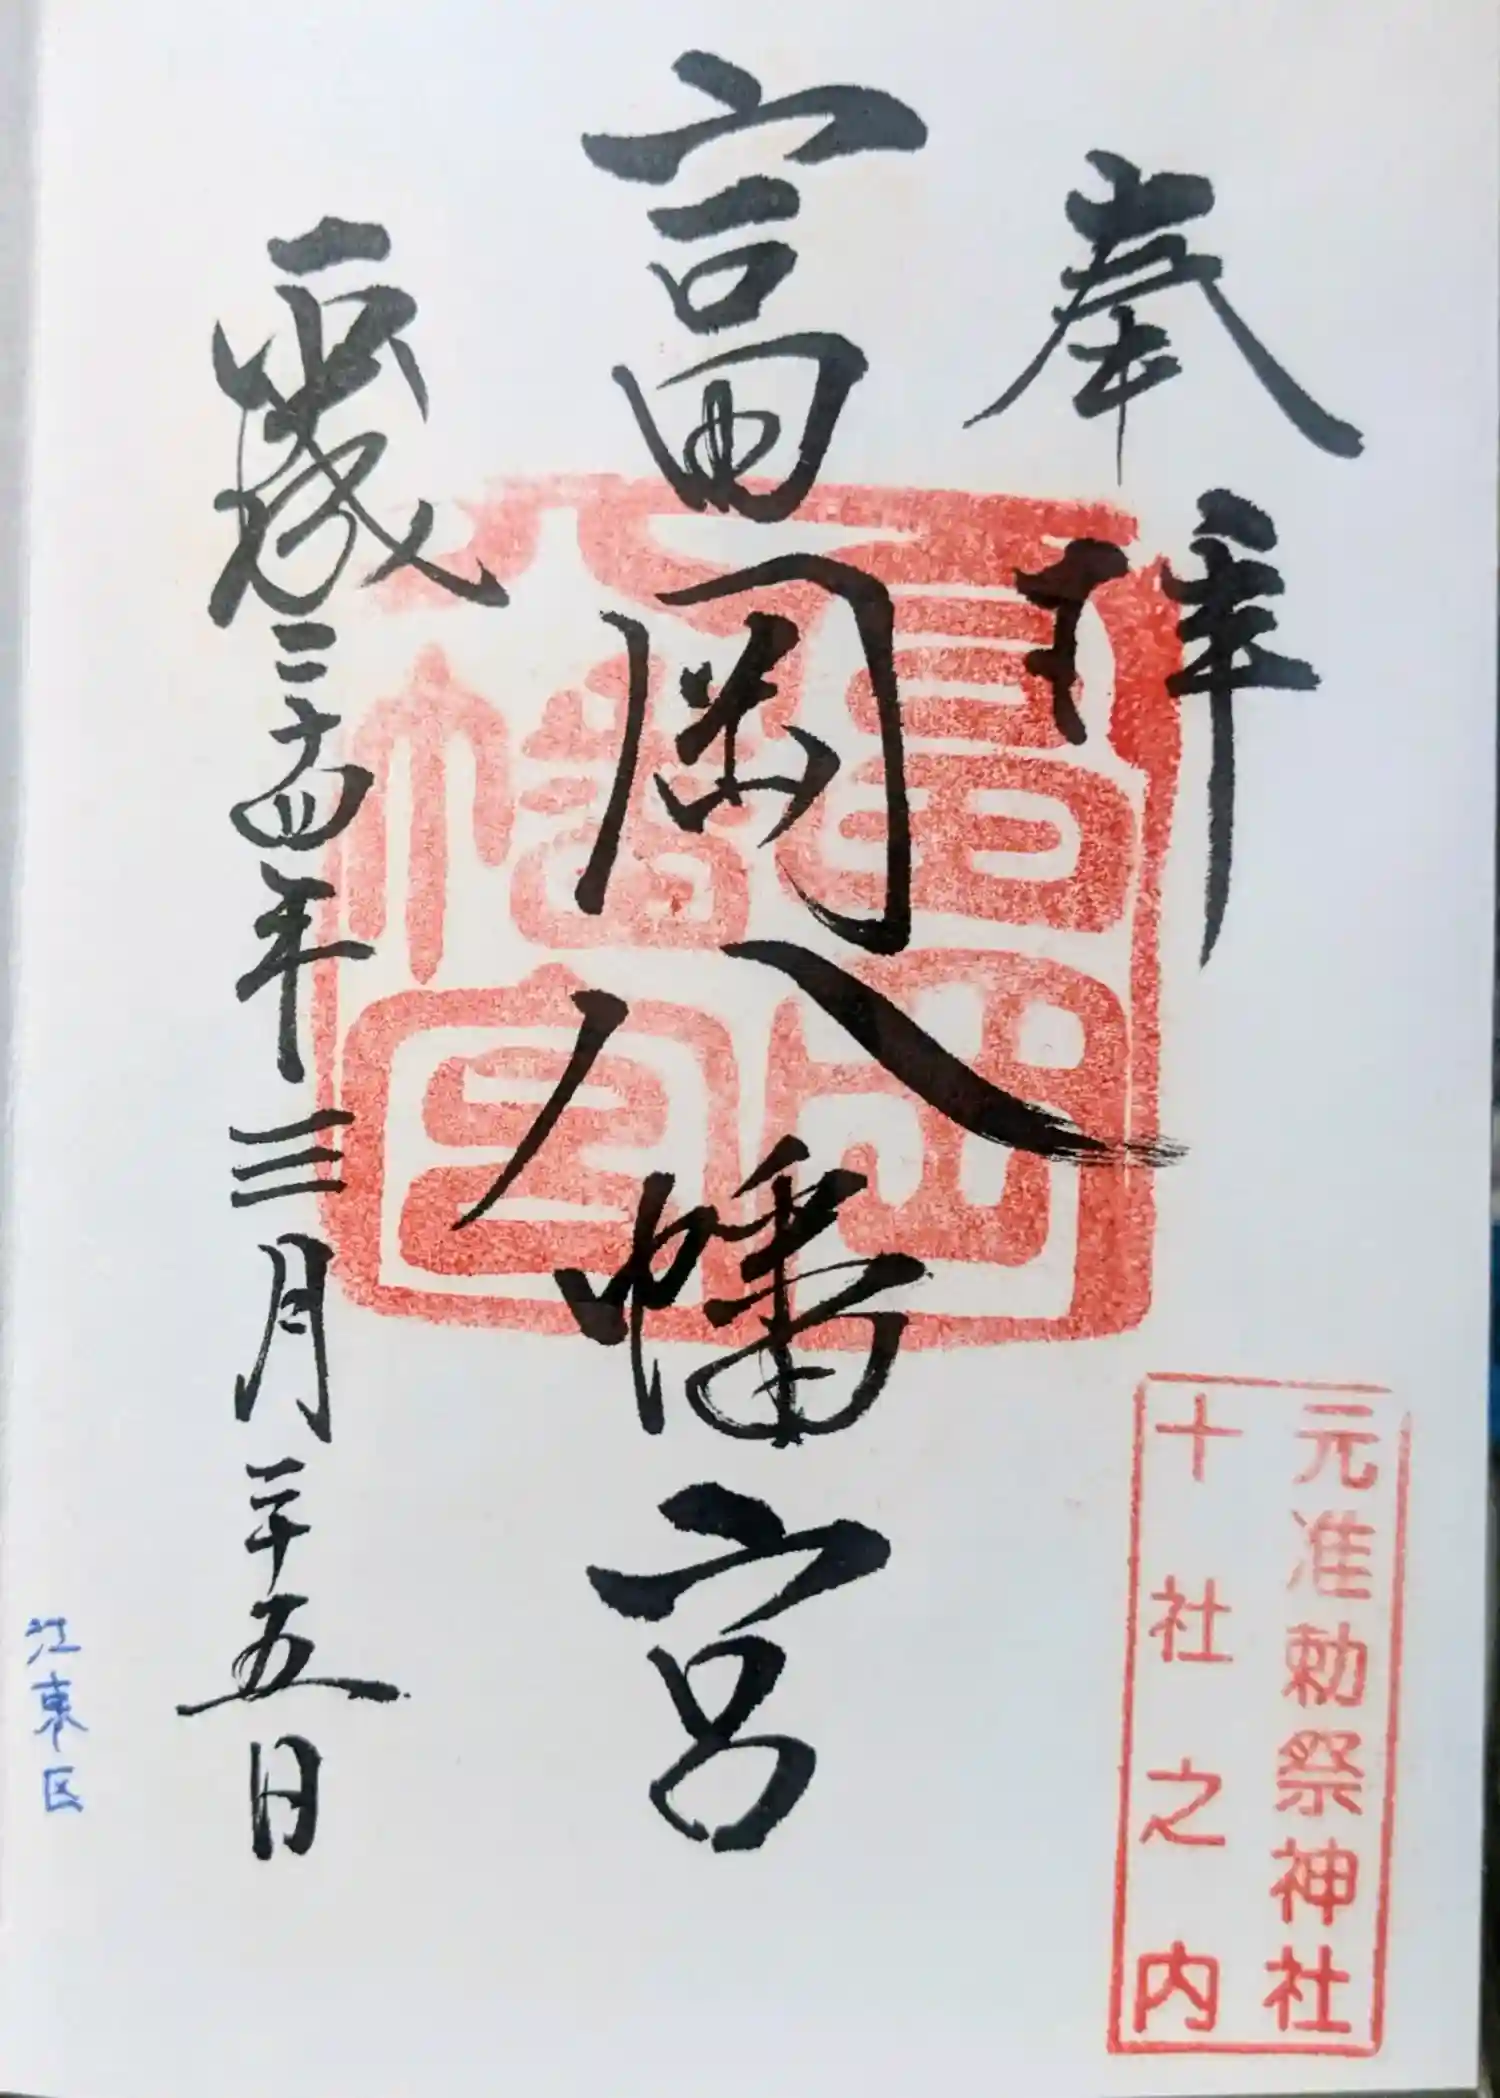 奉拝
富岡八幡宮
平成二十四年三月二十五日
富岡
八幡宮
元准勅祭神社
十社之内
江東区